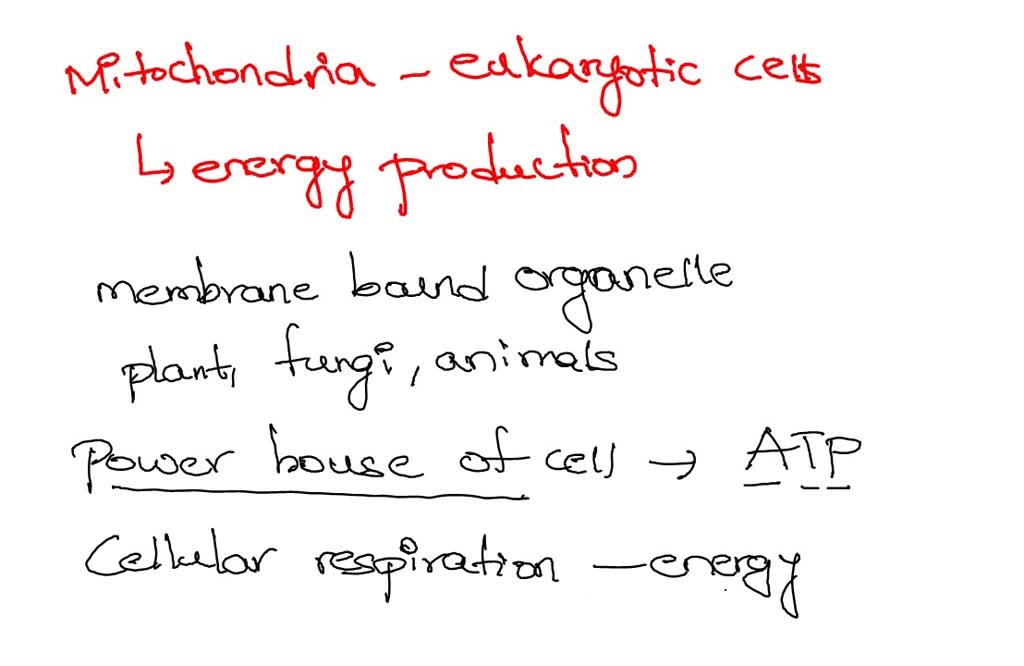 Mitochondria - eukaryotic cells
↳ energy production
membrane bound organelle
plant, fungi, animals
Power house of cell → ATP
Cellular respiration - energy